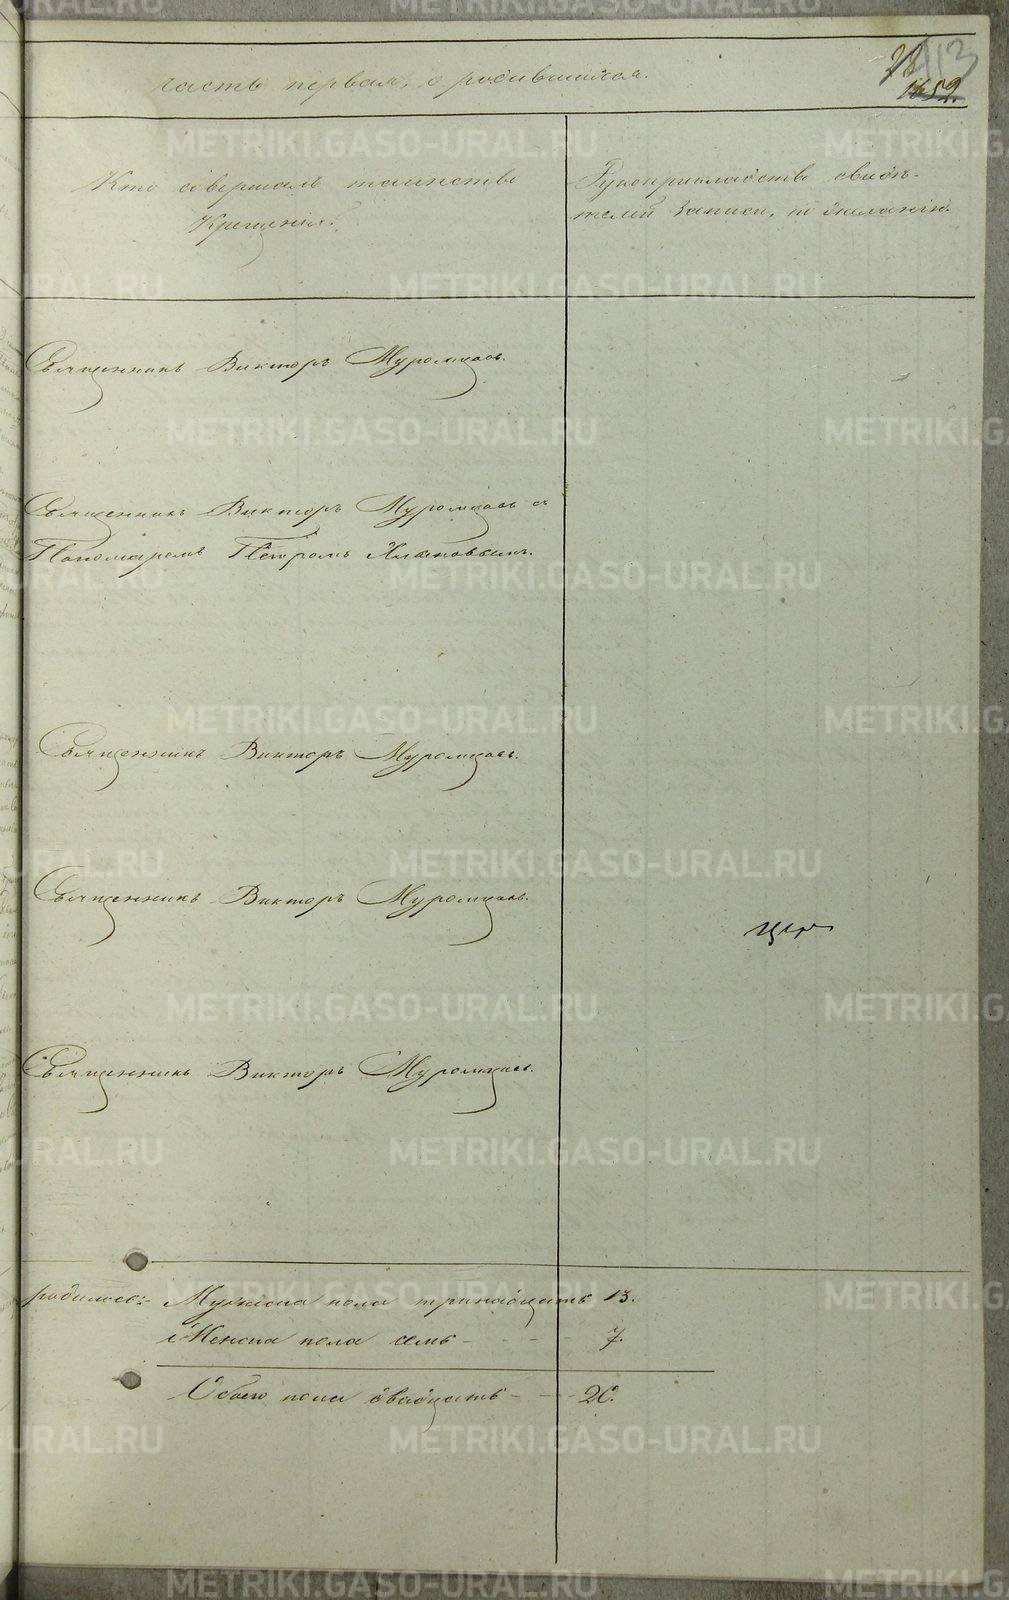 часть первая, о родившихся.
413
1659.
Кто совершалъ таинство
Крещенія?
Рукоприкладство свидѣ-
телей записи, по желанію.
Священникъ Викторъ Муромцовъ.
Священникъ Викторъ Муромцовъ съ
Пономаремъ Петромъ
Священникъ Викторъ Муромцовъ.
Священникъ Викторъ Муромцовъ.
Священникъ Викторъ Муромцовъ.
родилось:- Мужеска пола тринадцать 13.
Женска пола семь - - - - 7.
Обоего пола двадцать - - - 20.
METRIKI.GASO-URAL.RU